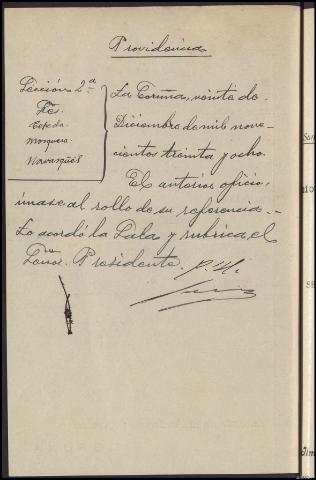 Providencia
Sección 2ª
Sres.
Cepeda
Mosquera
Navarqüés
La Coruña, veinte de
Diciembre de mil nove-
cientos treinta y ocho.
El anterior oficio,
únase al rollo de su referencia.-
Lo acordó la Sala y rubrica el
Señor Presidente.
P.H.